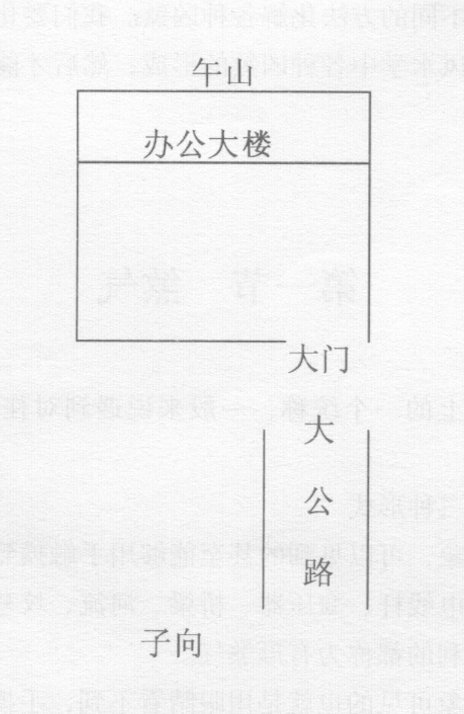 午山
办公大楼
大门
大公路
子向